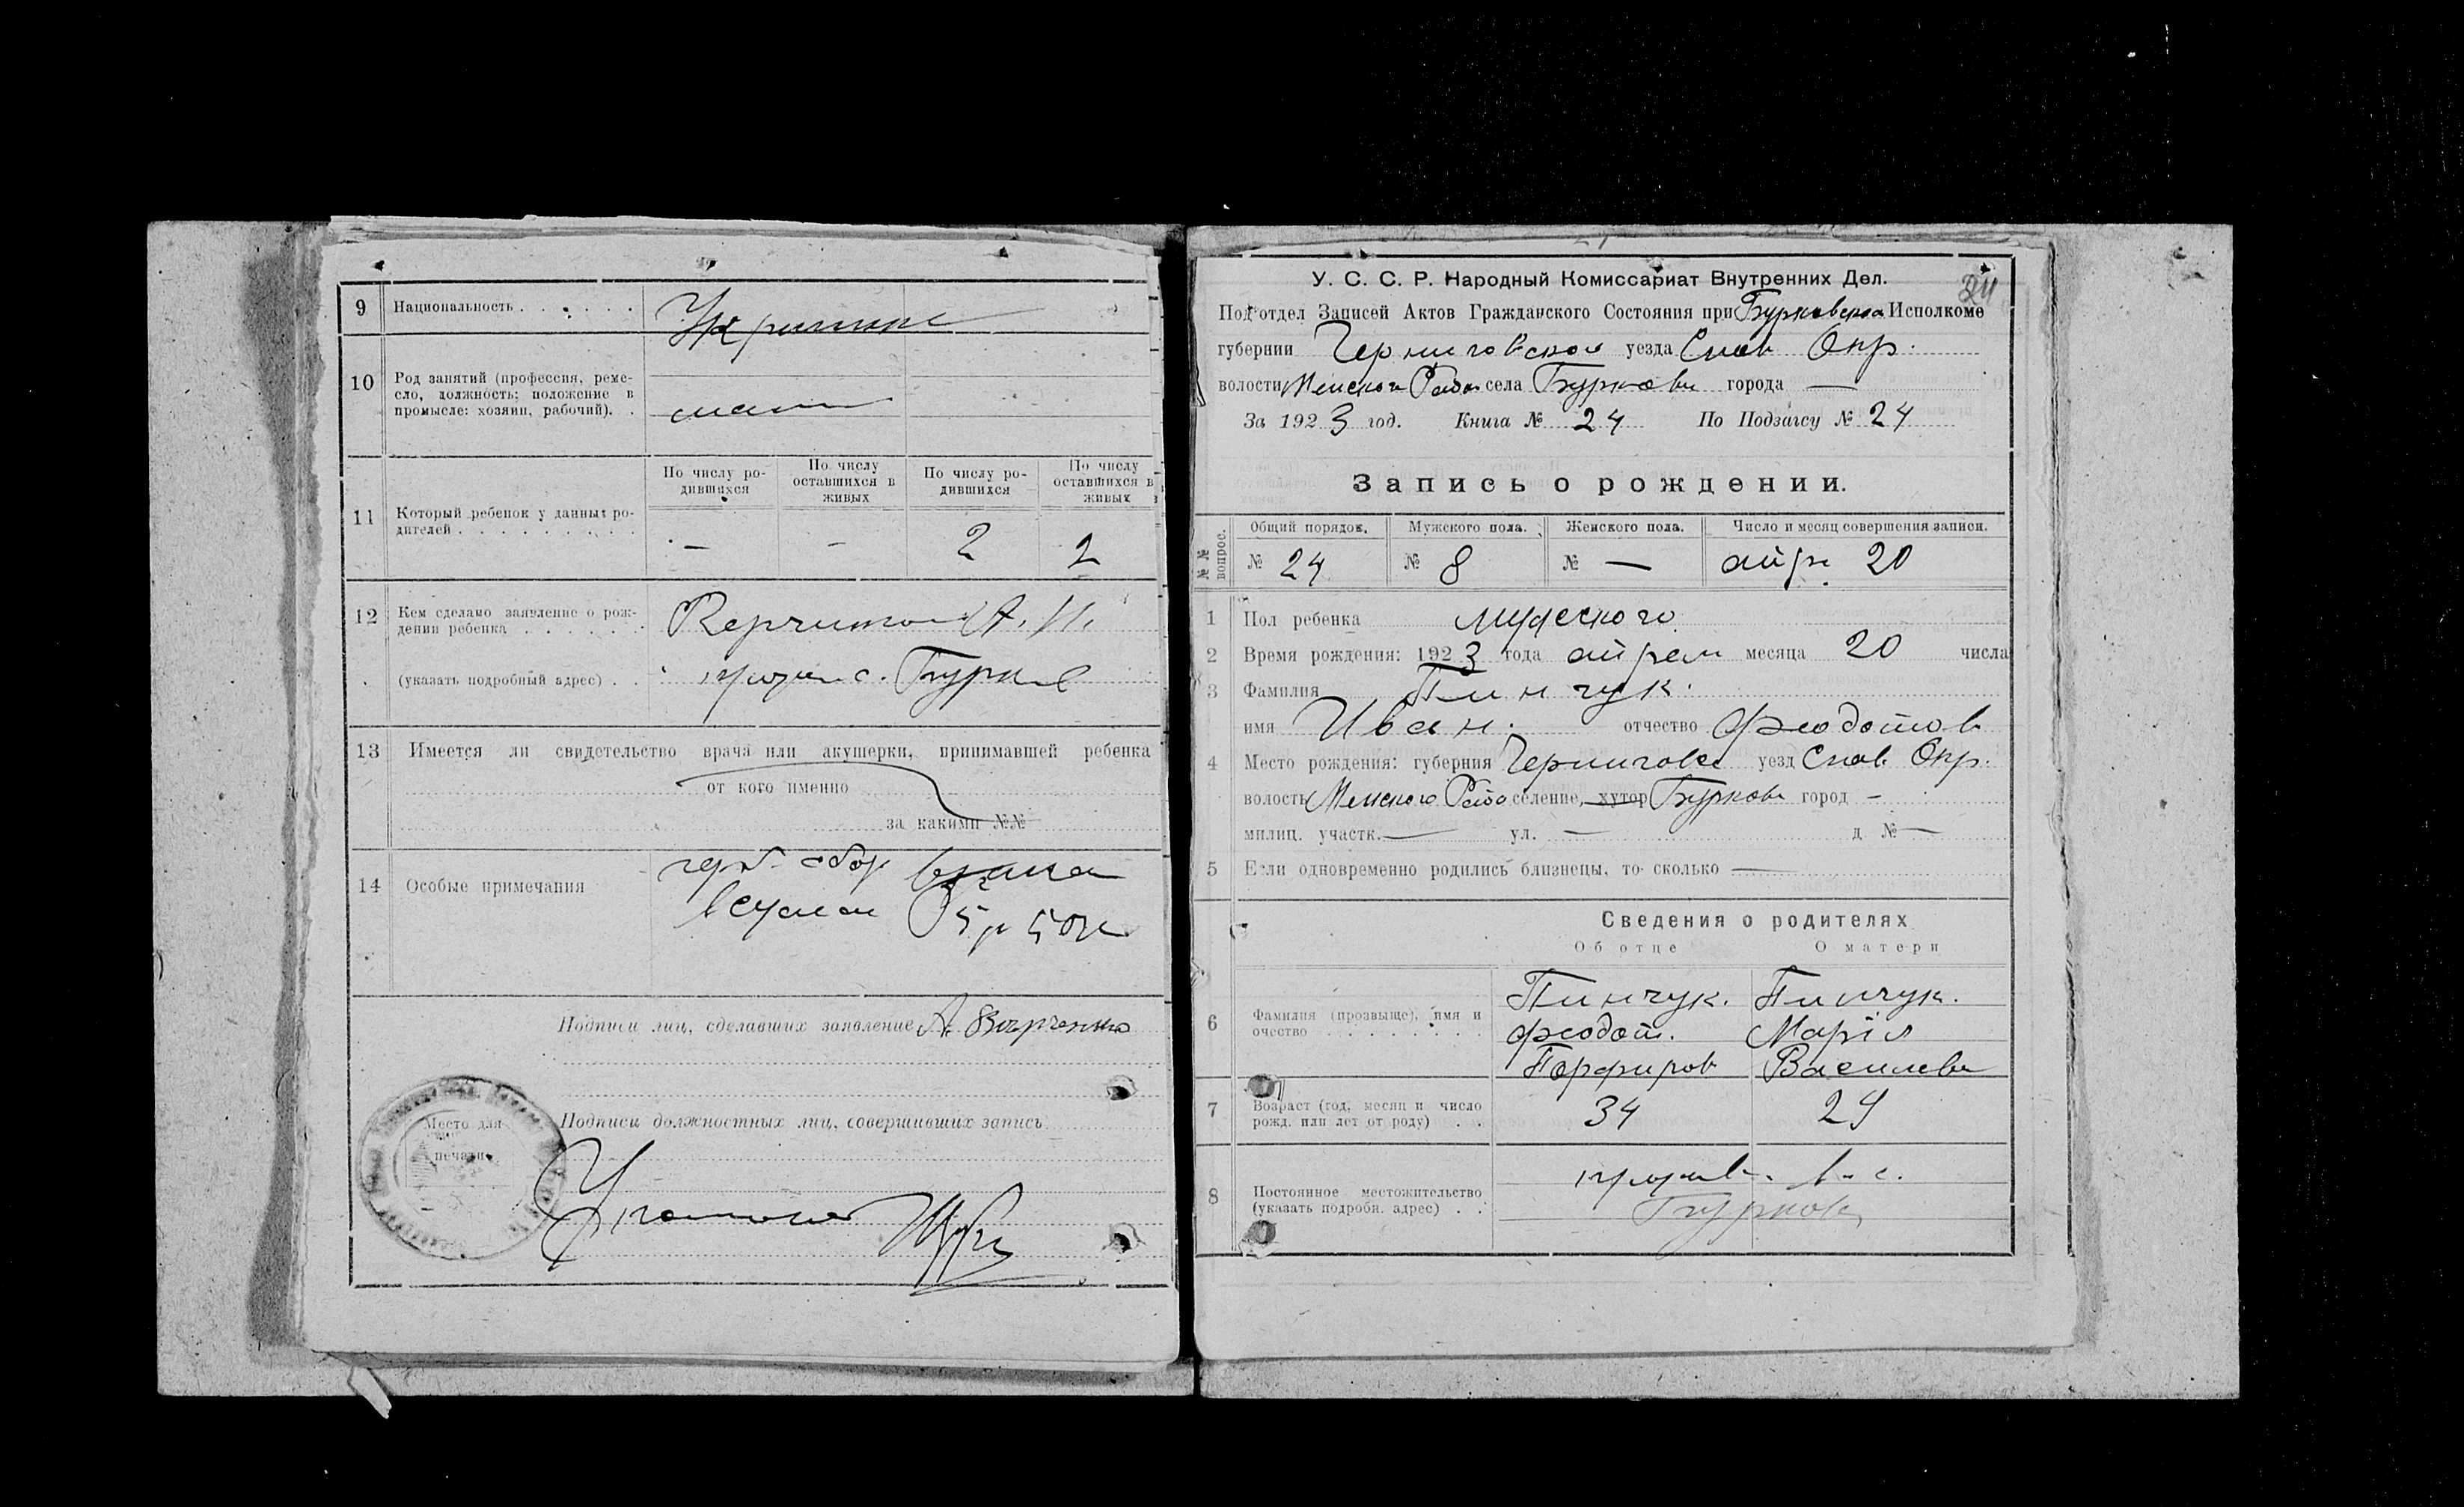 9 Национальность . . . . . .
10 Род занятий (профессия, реме-
сло, должность; положение в
промысле: хозяин, рабочий). .
11 Который ребенок у данных ро-
дителей . . . . . . . . .
По числу ро-
дившихся
По числу
оставшихся в
живых
По числу ро-
дившихся
По числу
оставшихся в
живых
— — 2 2
12 Кем сделано заявление о рож-
дении ребенка . . . . . .
А. И.
(указать подробный адрес) . .
с. Бурк
13 Имеется ли свидетельство врача или акушерки, принимавшей ребенка
от кого именно
за какими №№
14 Особые примечания
герб. сбор
5 р 50к
Подписи лиц, сделавших заявление А.
Подписи должностных лиц, совершивших запись
Место для
печати
24
У. С. С. Р. Народный Комиссариат Внутренних Дел.
Подотдел Записей Актов Гражданского Состояния при Бурковском Исполкоме
губернии Черниговской уезда Снов Окр.
волости Менского Райо села Бурковки города —
За 1923 год. Книга № 24 По Подзагсу № 24
Запись о рождении.
№№ вопрос.
Общий порядок. Мужского пола. Женского пола. Число и месяц совершения записи.
№ 24 № 8 № — апр. 20
1 Пол ребенка мужского
2 Время рождения: 1923 года апрел месяца 20 числа
3 Фамилия Пинчук.
имя Иван. отчество Феодотов
4 Место рождения: губерния Чернигов уезд Снов. Окр.
волость Менского Райо селение, хутор Бурковк город —
милиц. участк. — ул. — д. № —
5 Если одновременно родились близнецы, то сколько —
Сведения о родителях
Об отце О матери
6 Фамилия (прозвище), имя и
очество . . . . . . . .
Пинчук. Пинчук.
Феодот. Марія
Порфиров Василев
7 Возраст (год, месяц и число
рожд. или лет от роду) . .
34 29
8 Постоянное местожительство
(указать подробн. адрес) . .
в. с.
Бурковк